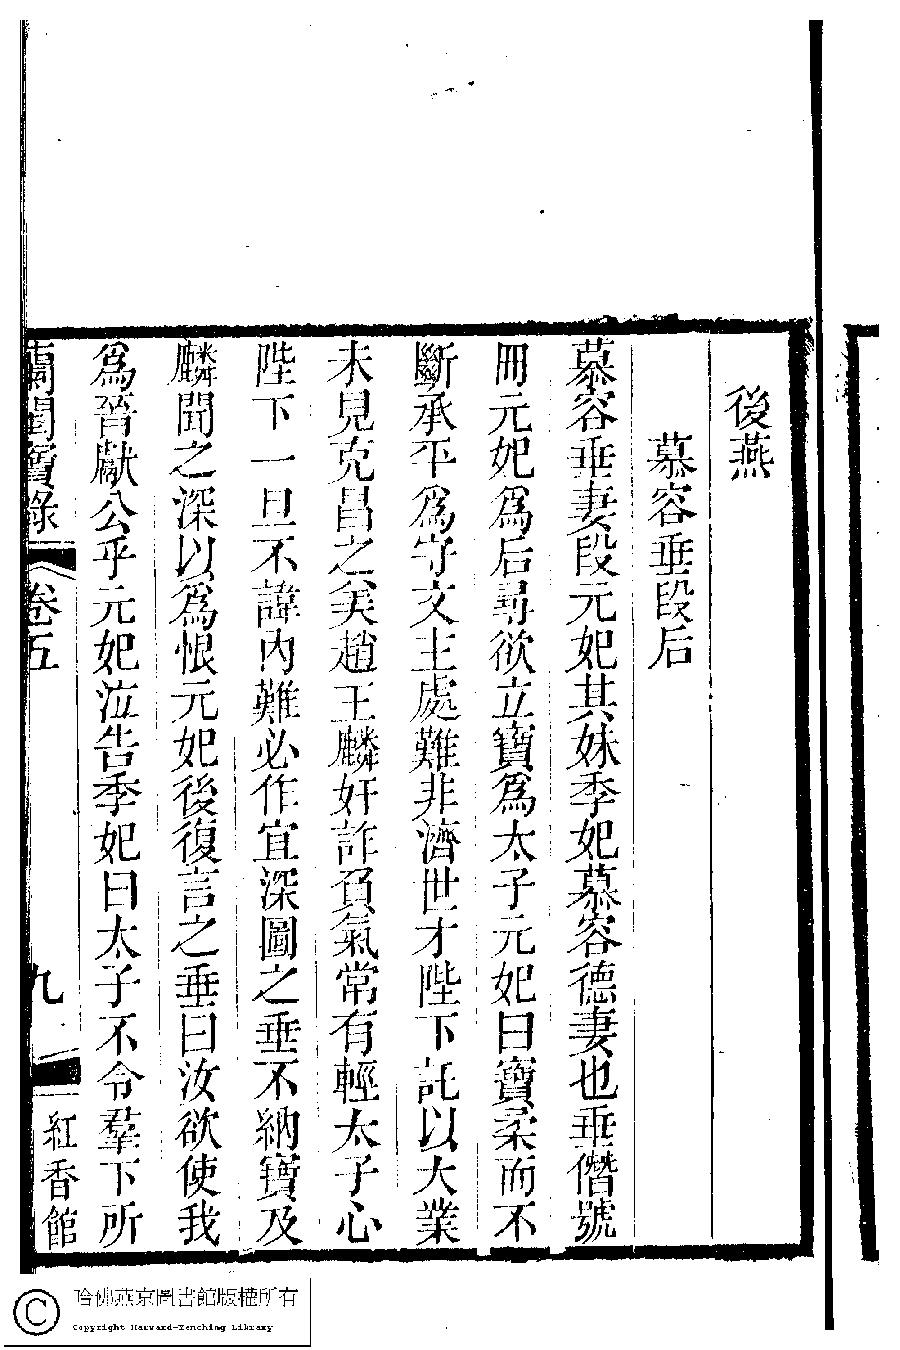 後燕
慕容垂段后
慕容垂妻段元妃其妹季妃慕容德妻也垂僭號
冊元妃爲后尋欲立寶爲太子元妃曰寶柔而不
斷承平爲守文主處難非濟世才陛下託以大業
未見克昌之美趙王麟奸詐負氣常有輕太子心
陛下一旦不諱內難必作宜深圖之垂不納寶及
麟聞之深以爲恨元妃後復言之垂曰汝欲使我
爲晉獻公乎元妃泣告季妃曰太子不令羣下所
蘭閨寶錄 卷五 九 紅香館
哈佛燕京圖書館版權所有
Copyright Harvard-Yenching Library